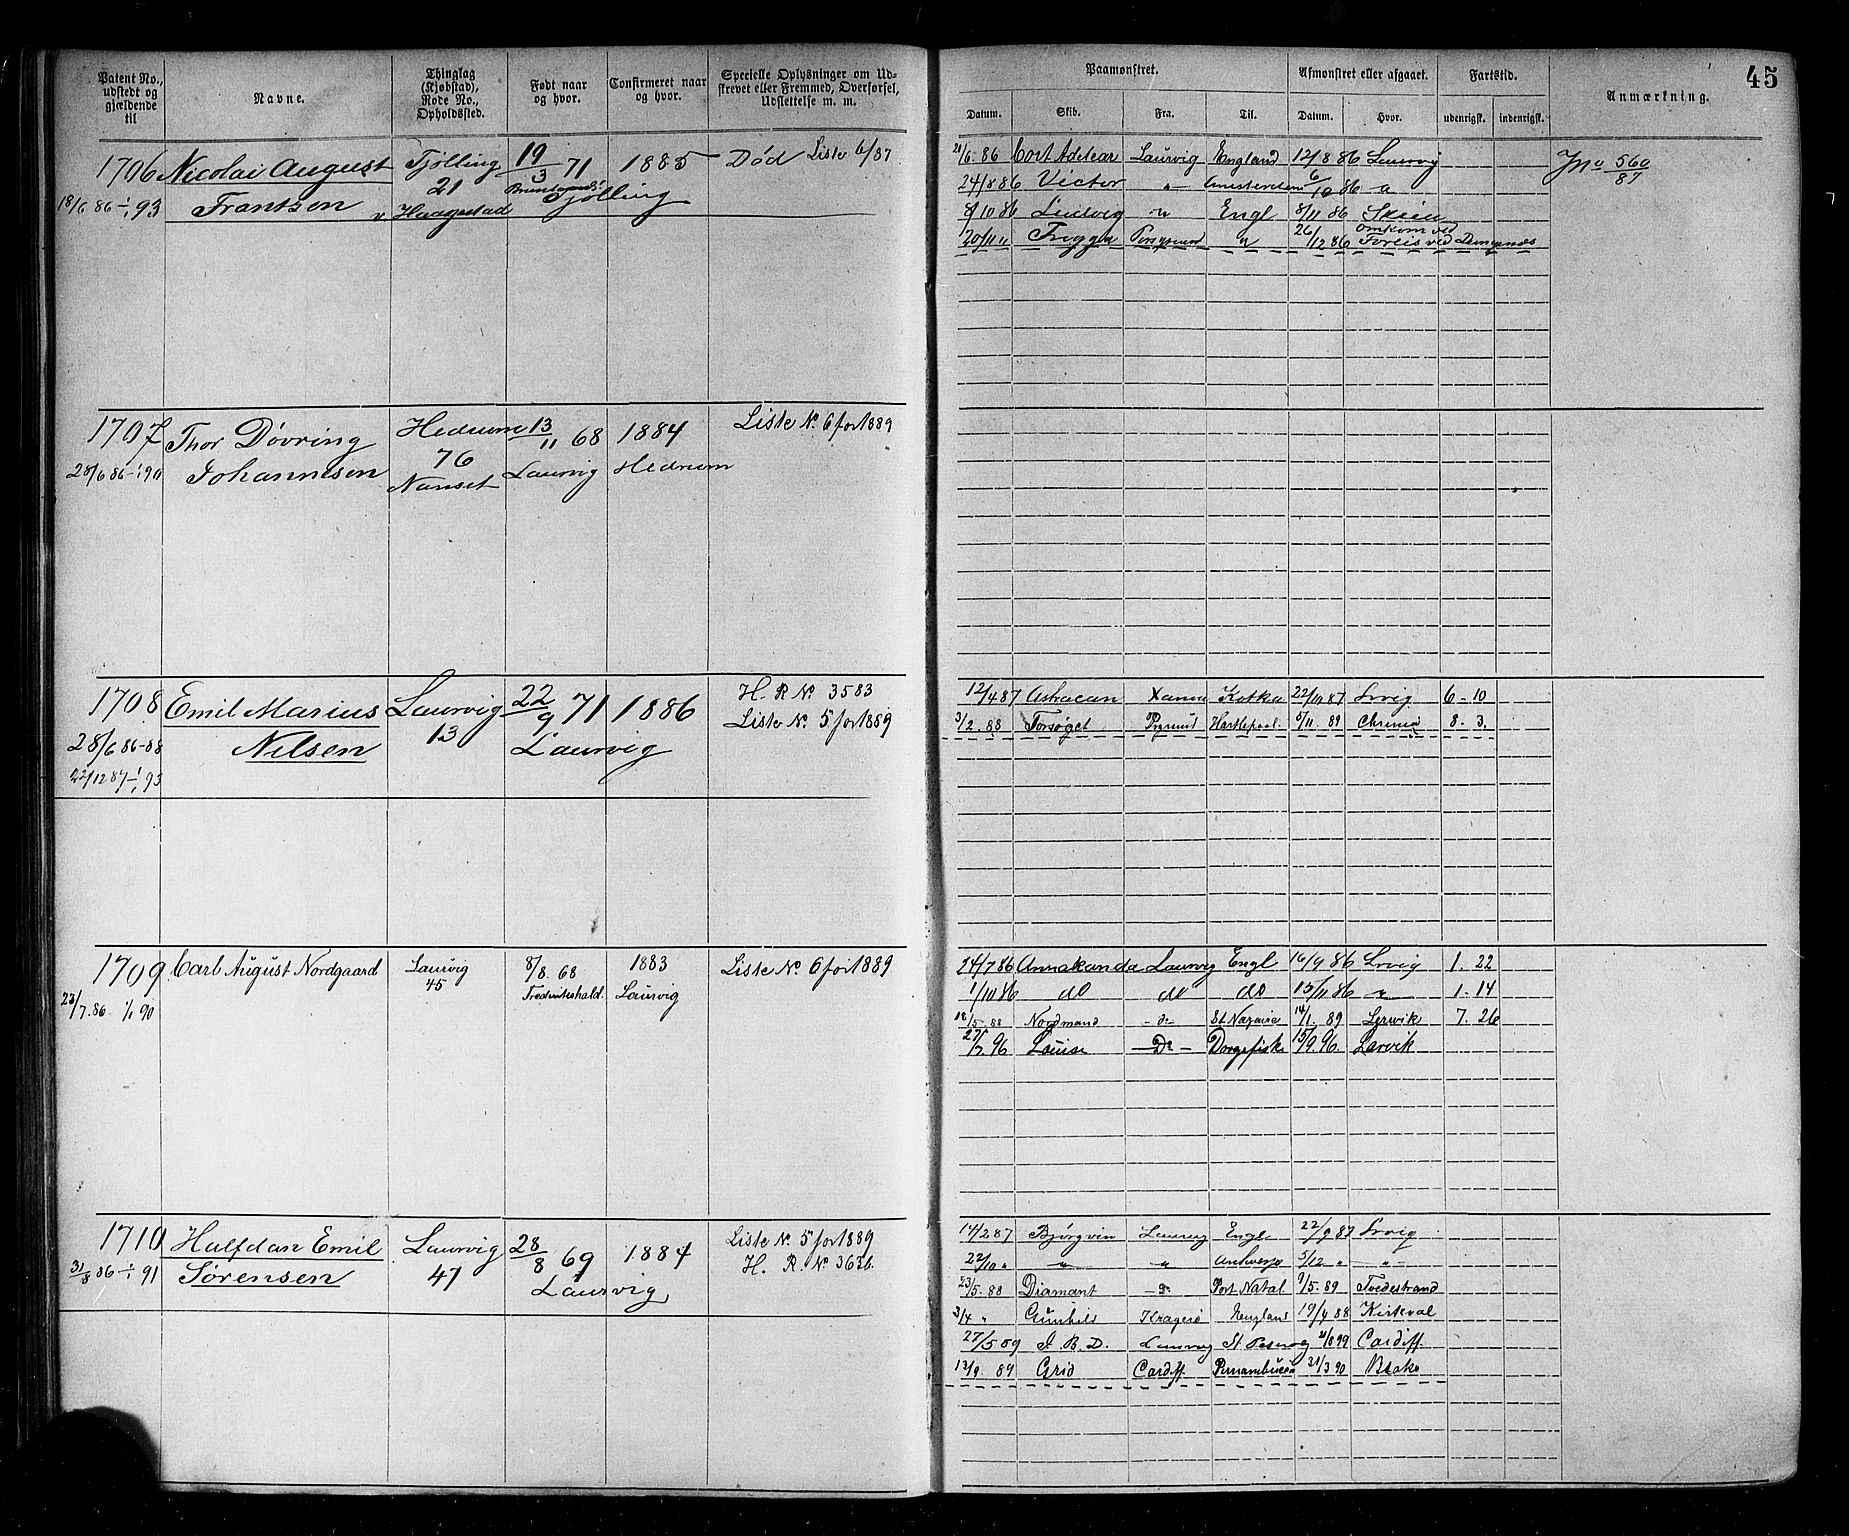 45
Patent No., udstedt og gjældende til
Navne.
Thinglag (Kjøbstad), Rode No., Opholdssted.
Født naar og hvor.
Confirmeret naar og hvor.
Specielle Oplysninger om Udskrevet eller Fremmed, Overførsel, Udslettelse m. m.
Paamønstret.
Afmønstret eller afgaaet.
Fartstid.
Anmærkning.
Datum. Skib. Fra. Til. Datum. Hvor. udenrigsk. indenrigsk.
1706 Nicolai August Tjølling 19/3 71 1885 Død Liste 6/87
18/6 86-1/1 93 Frantzen 21 Tjølling
v. Haagestad
21/6. 86 Cort Adelear Laurvig England 12/8 86 Laurvig Jno 560/87
24/8 86 Victor " Amsterdam 6/10 86 "
8/10 86 Ludvig " Engl 8/11 86 Skien
20/11 " Frogga Porsgrund " 26/12 86 omkom ved Forlis ved Dungenæs
1707 Thor Dövring Hedrum 13/11 68 1884 Liste No. 6 for 1889
28/6 86-1/1 90 Johannesen 76 Laurvig Hedrum
Nanset
1708 Emil Marius Laurvig 22/9 71 1886 H. R No. 3583
28/6 86-88 Nilsen 13 Laurvig Liste No. 5 for 1889
22/12 87-1/1 93
12/4 87 Astracan Kotka 22/10 87 Lrvig 6-10
3/2. 88 Forsøget Hartlepool 8/11. 89 Chrania 8. 3.
1709 Carl August Nordgaard Laurvig 8/8. 68 1883 Liste No 6 for 1889
23/7.86 1/1 90 45 Frederikshald. Laurvig
24/7 86 Annakanda Laurvig Engl 16/9 86 Lrvig 1. 22
1/10 86 do do do 15/11 86 " 1-14
18/5. 88 Nordmand -d- St. Nazaire 14/1. 89 Lerwik 7. 26
27/7 96 Louise -Do- Dorgefiske 15/9. 96. Larvik
1710 Halfdan Emil Laurvig 28/8 69 1884 Liste No. 5 for 1889
31/8 86-1/1 91 Sørensen 47 Laurvig H. R. No 3626.
14/2 87 Bjørgvin Laurvig Engl 22/9 87 Lrvig
22/10 " " " Antwerp 5/12 " "
23/5. 88 Diamant -d- Port Natal 9/5. 89 Tvedestrand
3/4 " Gunhild Kragerø England 19/4 88 Kirkval
27/5 89 J. B. D. Laurvig Cardiff.
13/9. 89 Grid Cardiff. Pernambuco 21/3 90